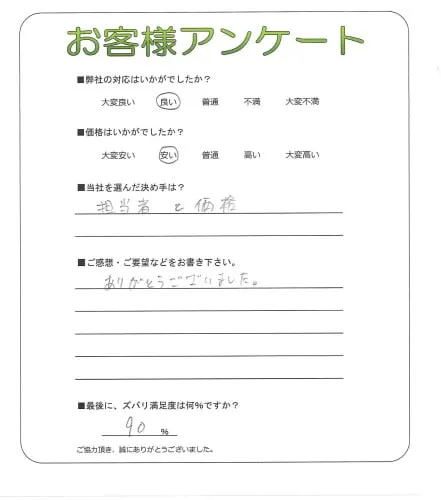 お客様アンケート
■弊社の対応はいかがでしたか?
大変良い 良い 普通 不満 大変不満
■価格はいかがでしたか?
大変安い 安い 普通 高い 大変高い
■当社を選んだ決め手は?
担当者 と 価格
■ご感想・ご要望などをお書き下さい。
ありがとうございました。
■最後に、ズバリ満足度は何%ですか?
90 %
ご協力頂き、誠にありがとうございました。